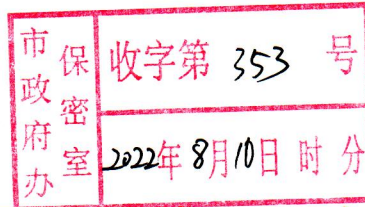 市政府办
保密室
收字第 353 号
2022年8月10日 时 分